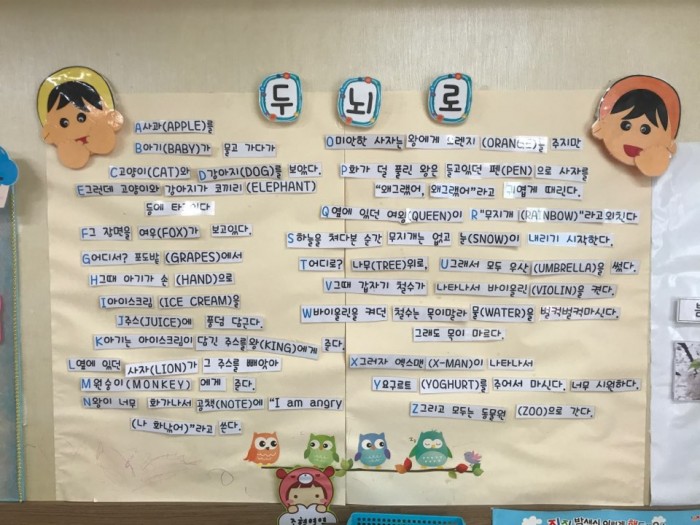 두뇌로
A사과(APPLE)를
B아기(BABY)가 물고 가다가
C고양이(CAT)와 D강아지(DOG)를 보았다.
E그런데 고양이와 강아지가 코끼리(ELEPHANT)
등에 타고있다
F그 장면을 여우(FOX)가 보고있다.
G어디서? 포도밭(GRAPES)에서
H그때 아기가 손 (HAND)으로
I아이스크림 (ICE CREAM)을
J주스(JUICE)에 퐁덩 담근다.
K아기는 아이스크림이 담긴 주스를 왕(KING)에게 준다.
L옆에 있던 사자(LION)가 그 주스를 빼앗아
M원숭이(MONKEY) 에게 준다.
N왕이 너무 화가나서 공책(NOTE)에 "I am angry
(나 화났어)"라고 쓴다.
O미안한 사자는 왕에게 오렌지 (ORANGE)를 주지만
P화가 덜 풀린 왕은 들고있던 펜(PEN)으로 사자를
"왜그랬어, 왜그랬어"라고 귀엽게 때린다.
Q옆에 있던 여왕(QUEEN)이 R"무지개 (RAINBOW)"라고 외친다
S하늘을 쳐다본 순간 무지개는 없고 눈(SNOW)이 내리기 시작한다.
T어디로? 나무(TREE)위로, U그래서 모두 우산(UMBRELLA)을 썼다.
V그때 갑자기 철수가 나타나서 바이올린(VIOLIN)을 켠다.
W바이올린을 켜던 철수는 목이말라 물(WATER)을 벌컥벌컥마신다.
그래도 목이 마르다.
X그러자 엑스맨 (X-MAN)이 나타나서
Y요구르트 (YOGHURT)를 주어서 마신다. 너무 시원하다.
Z그리고 모두는 동물원 (ZOO)으로 간다.